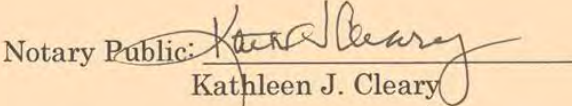 Notary Public: Kathleen J Cleary
Kathleen J. Cleary